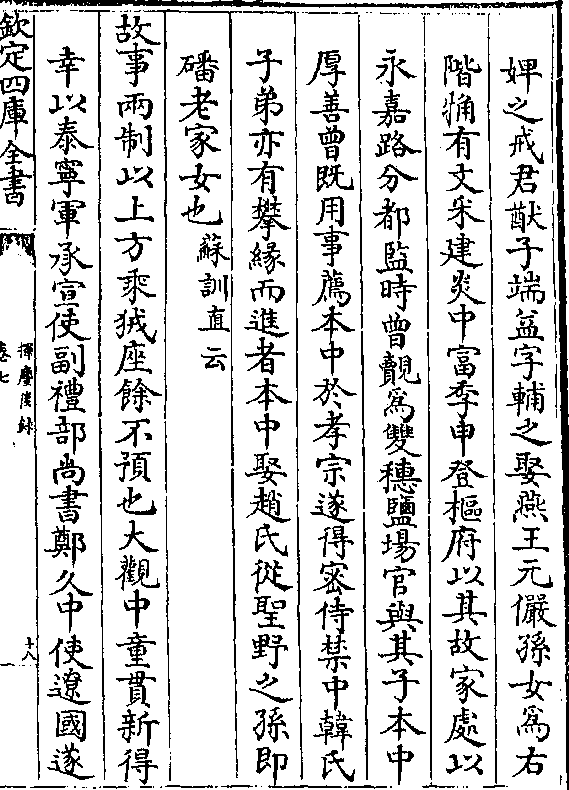 婢之戒君猷子端益字輔之娶燕王元儼孫女爲右
階觕有文采建炎中富季申登樞府以其故家處以
永嘉路分都監時曾覿爲雙穗鹽場官與其子本中
厚善曾既用事薦本中於孝宗遂得密侍禁中韓氏
子弟亦有攀緣而進者本中娶趙氏從聖野之孫即
磻老家女也蘇訓直云
故事兩制以上方乘狨座餘不預也大觀中童貫新得
幸以泰寧軍承宣使副禮部尚書鄭久中使遼國遂
欽定四庫全書
揮麈後録
卷七
十八